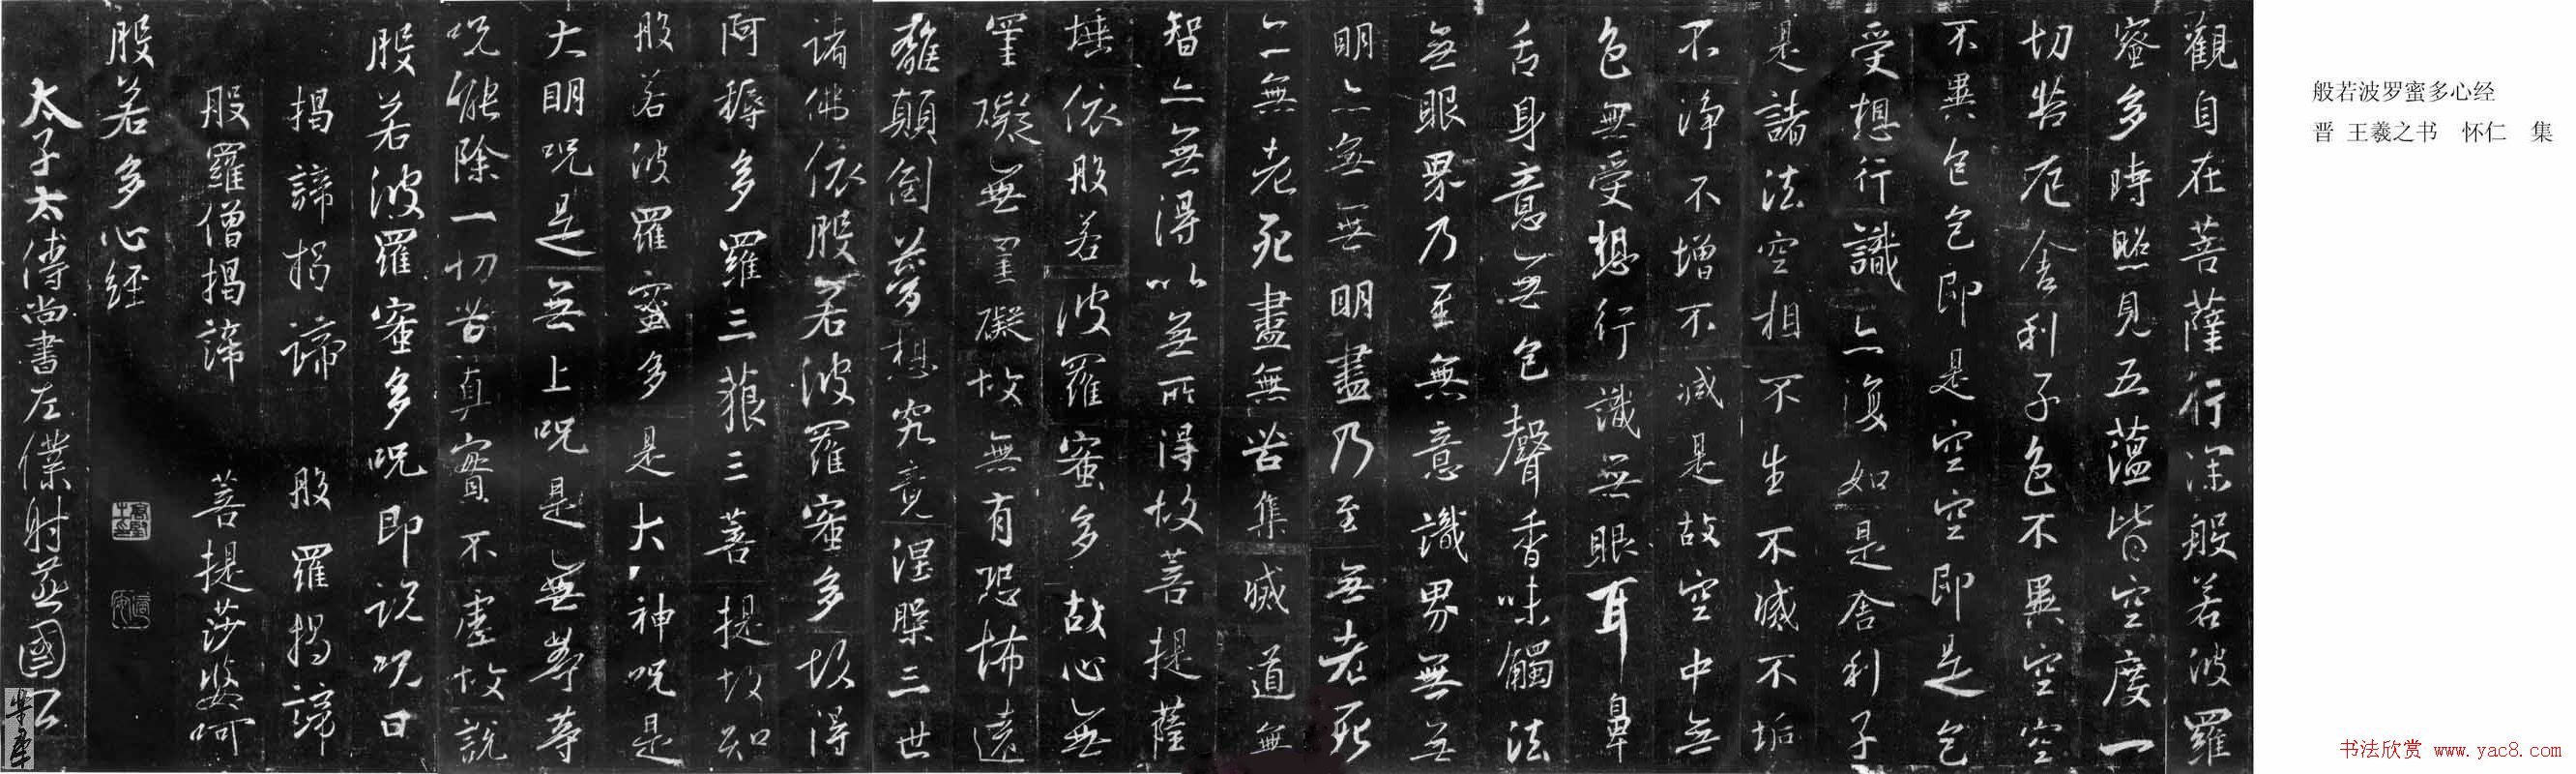 般若波罗蜜多心经
晋 王羲之书 怀仁 集
觀自在菩薩行深般若波羅
蜜多時照見五蘊皆空度一
切苦厄舍利子色不異空空
不異色色即是空空即是色
受想行識亦復如是舍利子
是諸法空相不生不滅不垢
不淨不增不減是故空中無
色無受想行識無眼耳鼻
舌身意無色聲香味觸法
無眼界乃至無意識界無無
明亦無無明盡乃至無老死
亦無老死盡無苦集滅道無
智亦無得以無所得故菩提薩
埵依般若波羅蜜多故心無
罣礙無罣礙故無有恐怖遠
離顛倒夢想究竟涅槃三世
諸佛依般若波羅蜜多故得
阿耨多羅三藐三菩提故知
般若波羅蜜多是大神咒是
大明咒是無上咒是無等等
咒能除一切苦真實不虛故說
般若波羅蜜多咒即說咒曰
揭諦揭諦 般羅揭諦
般羅僧揭諦 菩提莎婆呵
般若多心經
太子太傅尚書左僕射燕國公
书法欣赏 www.yac8.com